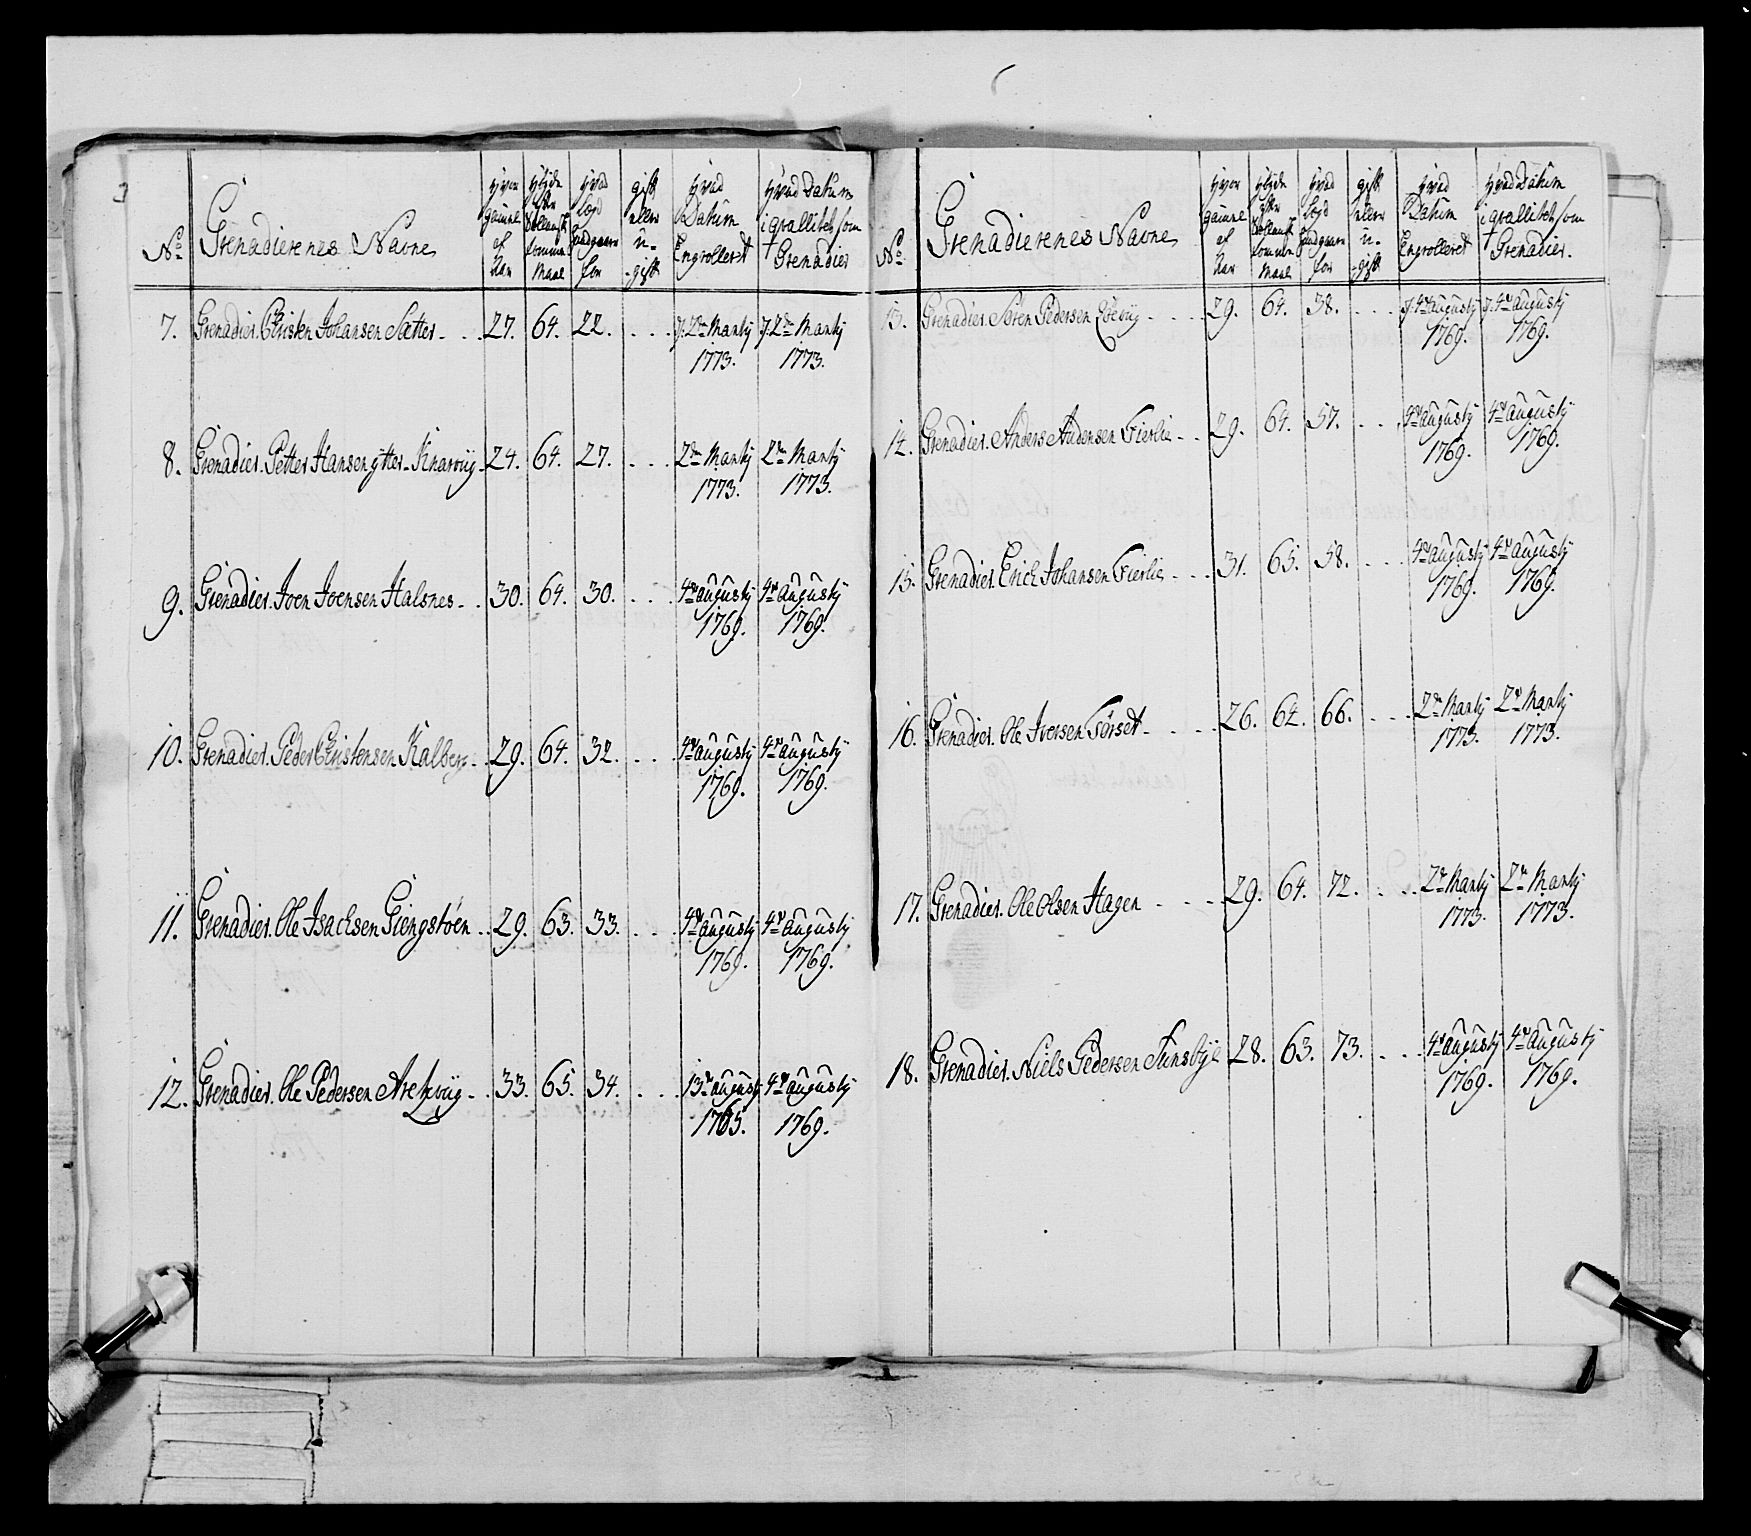 No. Grenadierenes Navne hvor gamel af Aar gift eller u-gift hvad Datum Engrolleret hvad Datum i qvallitet som Grenadier
7. Grenadier. Christen Johansen Sæter 27. 64. 22. d. 2de Martij 1773. d. 2de Martij 1773.
8. Grenadier. Petter Hansen ytter-Knarviig 24. 64. 27. 2de Martij 1773. 2de Martij 1773.
9. Grenadier. Joen Joensen Halsnes 30. 64. 30. 4de Augustij 1769. 4de Augustij 1769.
10. Grenadier. Peder Christensen Kalberg 29. 64. 32. 4de Augustij 1769. 4de Augustij 1769.
11. Grenadier. Ole Isachsen Giengstøen 29. 63. 33. 4de Augustij 1769. 4de Augustij 1769.
12. Grenadier. Ole Pedersen Arelzviig 33. 65. 34. 13de Augustij 1765. 4de Augustij 1769.
No. Grenadierenes Navne hvor gamel af Aar gift eller u-gift hvad Datum Engrolleret hvad Datum i qvallitet som Grenadier.
13. Grenadier. Søren Pedersen 29. 64. 38. d. 4de Augustij 1769. d. 4de Augustij 1769.
14. Grenadier. Anders Andersen Fierlie 29. 64. 57. 4de Augustij 1769. 4de Augustij 1769.
15. Grenadier. Erich Johansen Fierlie 31. 65. 58. 4de Augustij 1769. 4de Augustij 1769.
16. Grenadier. Ole Iversen Sørset 26. 62. 66. 2de Martij 1773. 2de Martij 1773.
17. Grenadier. Ole Olsen Hagen 29. 64. 72. 2de Martij 1773. 2de Martij 1773.
18. Grenadier. Niels Pedersen Tunsbye 28. 63. 73. 4de Augustij 1769. 4de Augustij 1769.